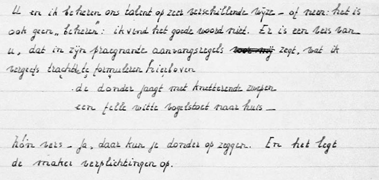 U en ik beheren ons talent op zeer verschillende wijze - of neen: het is
ook geen "beheren": ik vind het goede woord niet. Er is een vers van
u, dat in zijn pregnante aanvangsregels zegt, wat ik
vergeefs trachtte te formuleren hierboven
de donder jaagt met knetterende zwepen
een felle witte vogelstoet naar huis -
Zo'n vers - ja, daar kun je donder op zeggen. En het legt
de maker verplichtingen op.